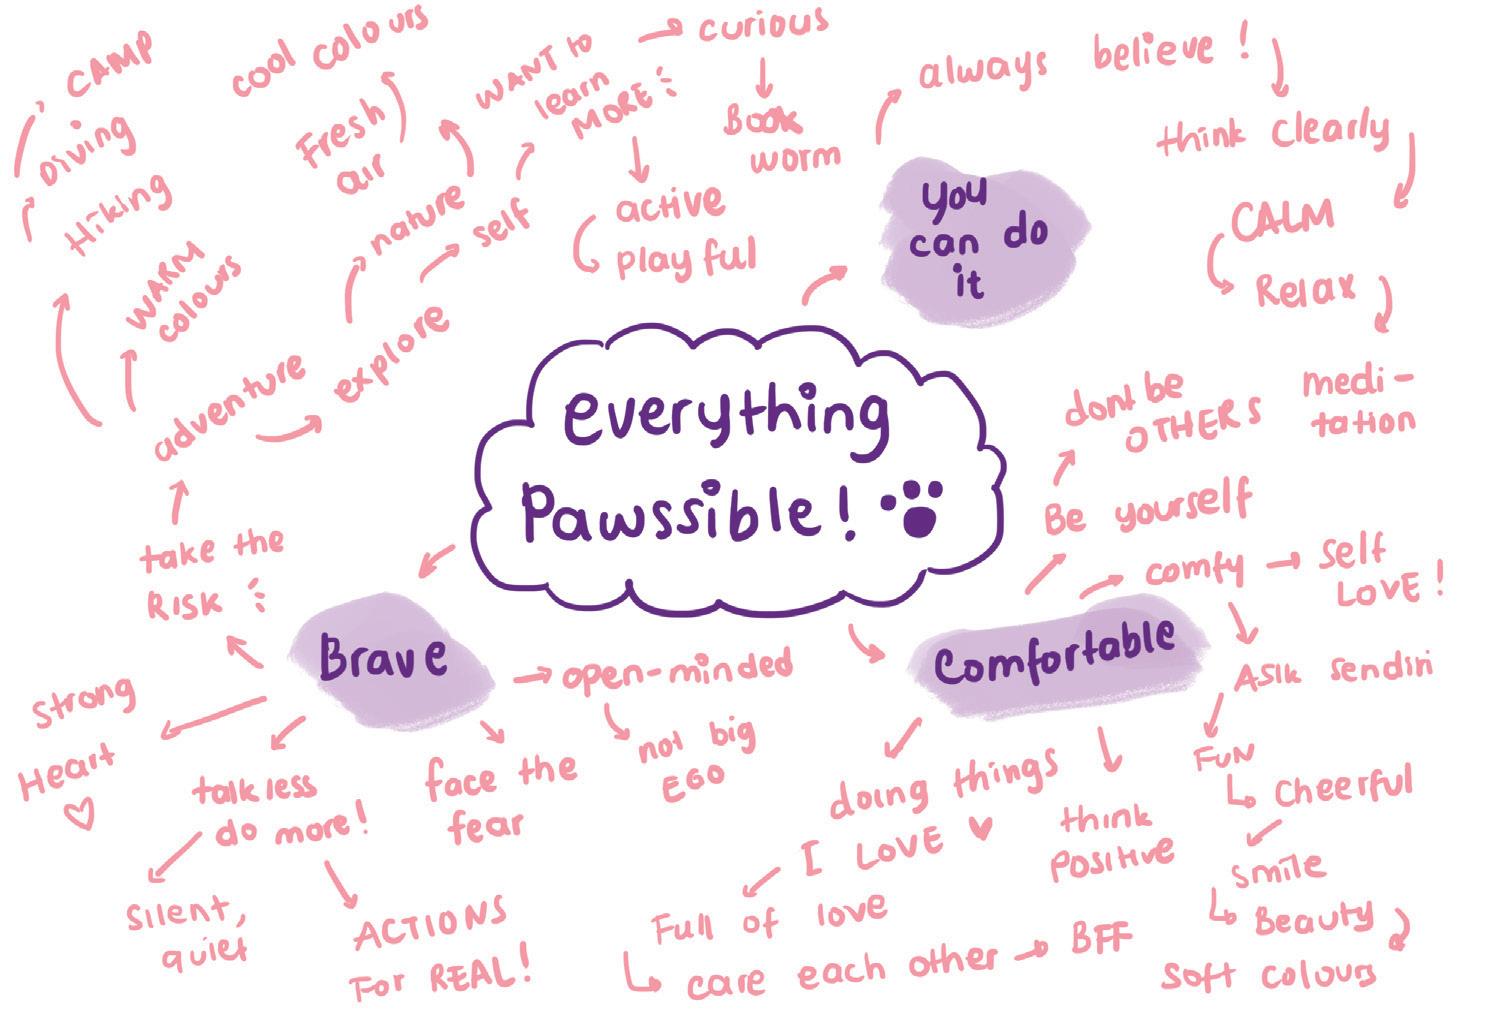 everything
Pawssible!
you
can do
it
always believe!
think clearly
CALM
Relax
medi-
tation
Brave
take the
RISK
adventure
WARM
colours
Hiking
Diving
CAMP
explore
nature
Fresh
air
cool colours
self
WANT to
learn
MORE
curious
Book
worm
active
playful
Strong
Heart
talk less
do more!
Silent,
quiet
ACTIONS
For REAL!
face the
fear
open-minded
not big
EGO
Comfortable
Be yourself
dont be
OTHERS
comfy
self
LOVE!
Asik sendiri
FUN
Cheerful
Smile
Beauty
Soft colours
think
Positive
doing things
I LOVE
Full of love
care each other
BFF